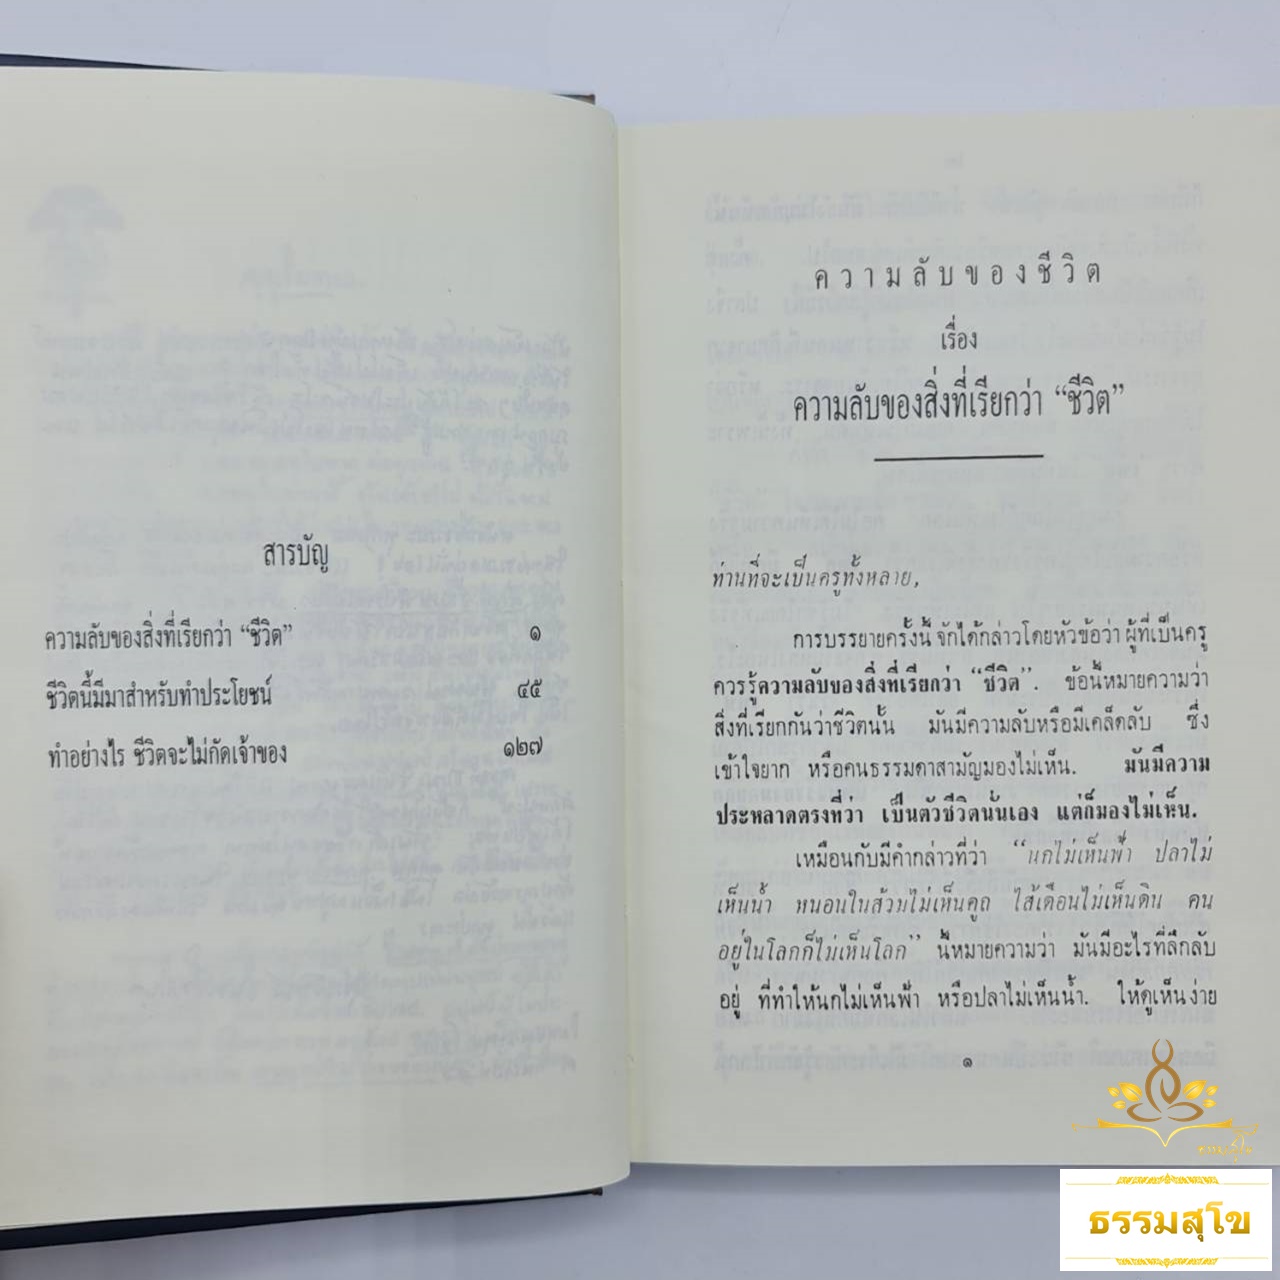 สารบัญ
ความลับของสิ่งที่เรียกว่า “ชีวิต” ๑
ชีวิตนี้มีมาสำหรับทำประโยชน์ ๔๕
ทำอย่างไร ชีวิตจะไม่กัดเจ้าของ ๑๒๗
ความลับของชีวิต
เรื่อง
ความลับของสิ่งที่เรียกว่า “ชีวิต”
ท่านที่จะเป็นครูทั้งหลาย,
การบรรยายครั้งนี้ จักได้กล่าวโดยหัวข้อว่า ผู้ที่เป็นครู
ควรรู้ความลับของสิ่งที่เรียกว่า “ชีวิต”. ข้อนี้หมายความว่า
สิ่งที่เรียกกันว่าชีวิตนั้น มันมีความลับหรือมีเคล็ดลับ ซึ่ง
เข้าใจยาก หรือคนธรรมดาสามัญมองไม่เห็น. มันมีความ
ประหลาดตรงที่ว่า เป็นตัวชีวิตนั้นเอง แต่ก็มองไม่เห็น.
เหมือนกับมีคำกล่าวที่ว่า “นกไม่เห็นฟ้า ปลาไม่
เห็นน้ำ หนอนในส้วมไม่เห็นคูถ ไส้เดือนไม่เห็นดิน คน
อยู่ในโลกก็ไม่เห็นโลก” นี้หมายความว่า มันมีอะไรที่ลึกลับ
อยู่ ที่ทำให้นกไม่เห็นฟ้า หรือปลาไม่เห็นน้ำ. ให้ดูเห็นง่าย
๑
ธรรมสุโข
ธรรมสุโข